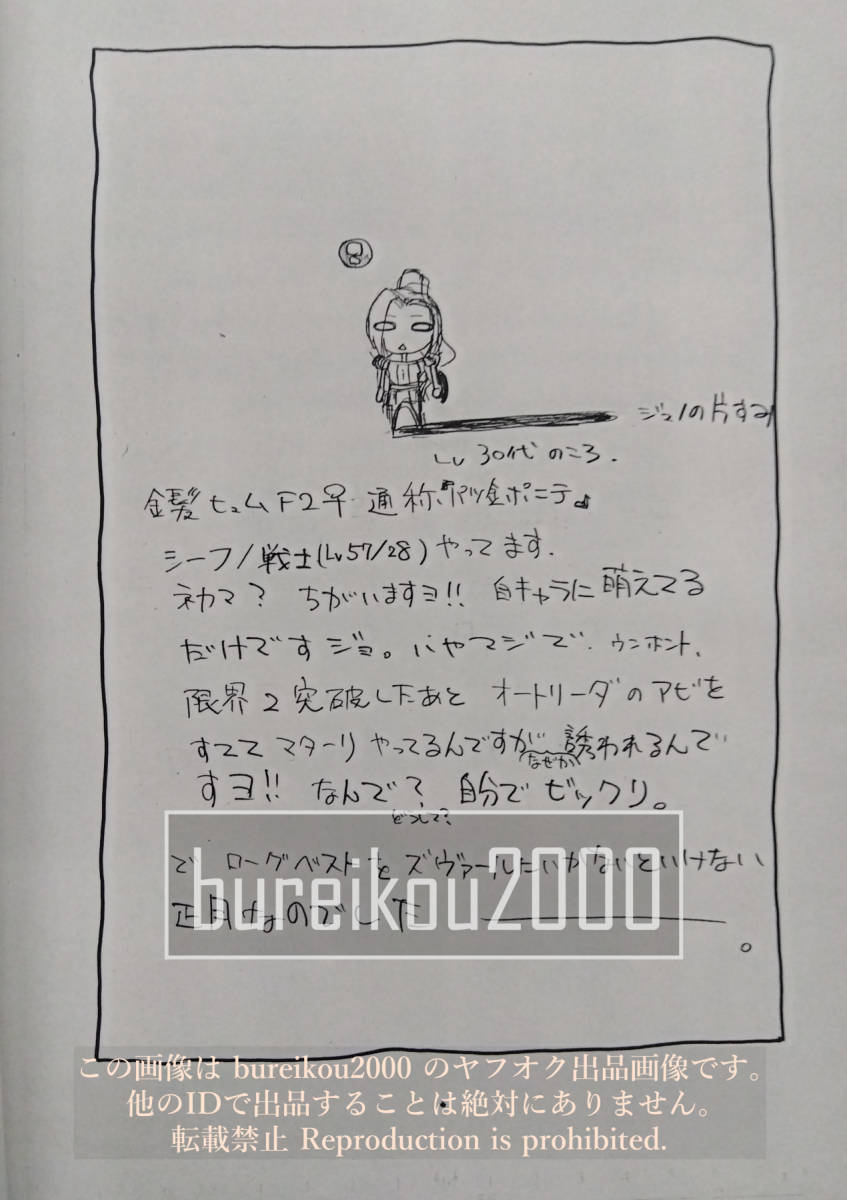 ジュノの片すみ
Lv 30代のころ.
金髪ヒュムF2♀ 通称『パツ金ポニテ』
シーフ/戦士(Lv57/28)やってます.
ネカマ? ちがいますヨ!! 自キャラに萌えてる
だけですジョ。いやマジで. ウンホント.
限界2突破したあと オートリーダのアビを
すててマターリやってるんですが 誘われるんで
なぜか
すヨ!! なんで? 自分でビックリ。
どうして?
で ローグベストを ズヴァールたいかないといけない
正月なのでした
。
bureikou2000
この画像は bureikou2000 のヤフオク出品画像です。
他のIDで出品することは絶対にありません。
転載禁止 Reproduction is prohibited.